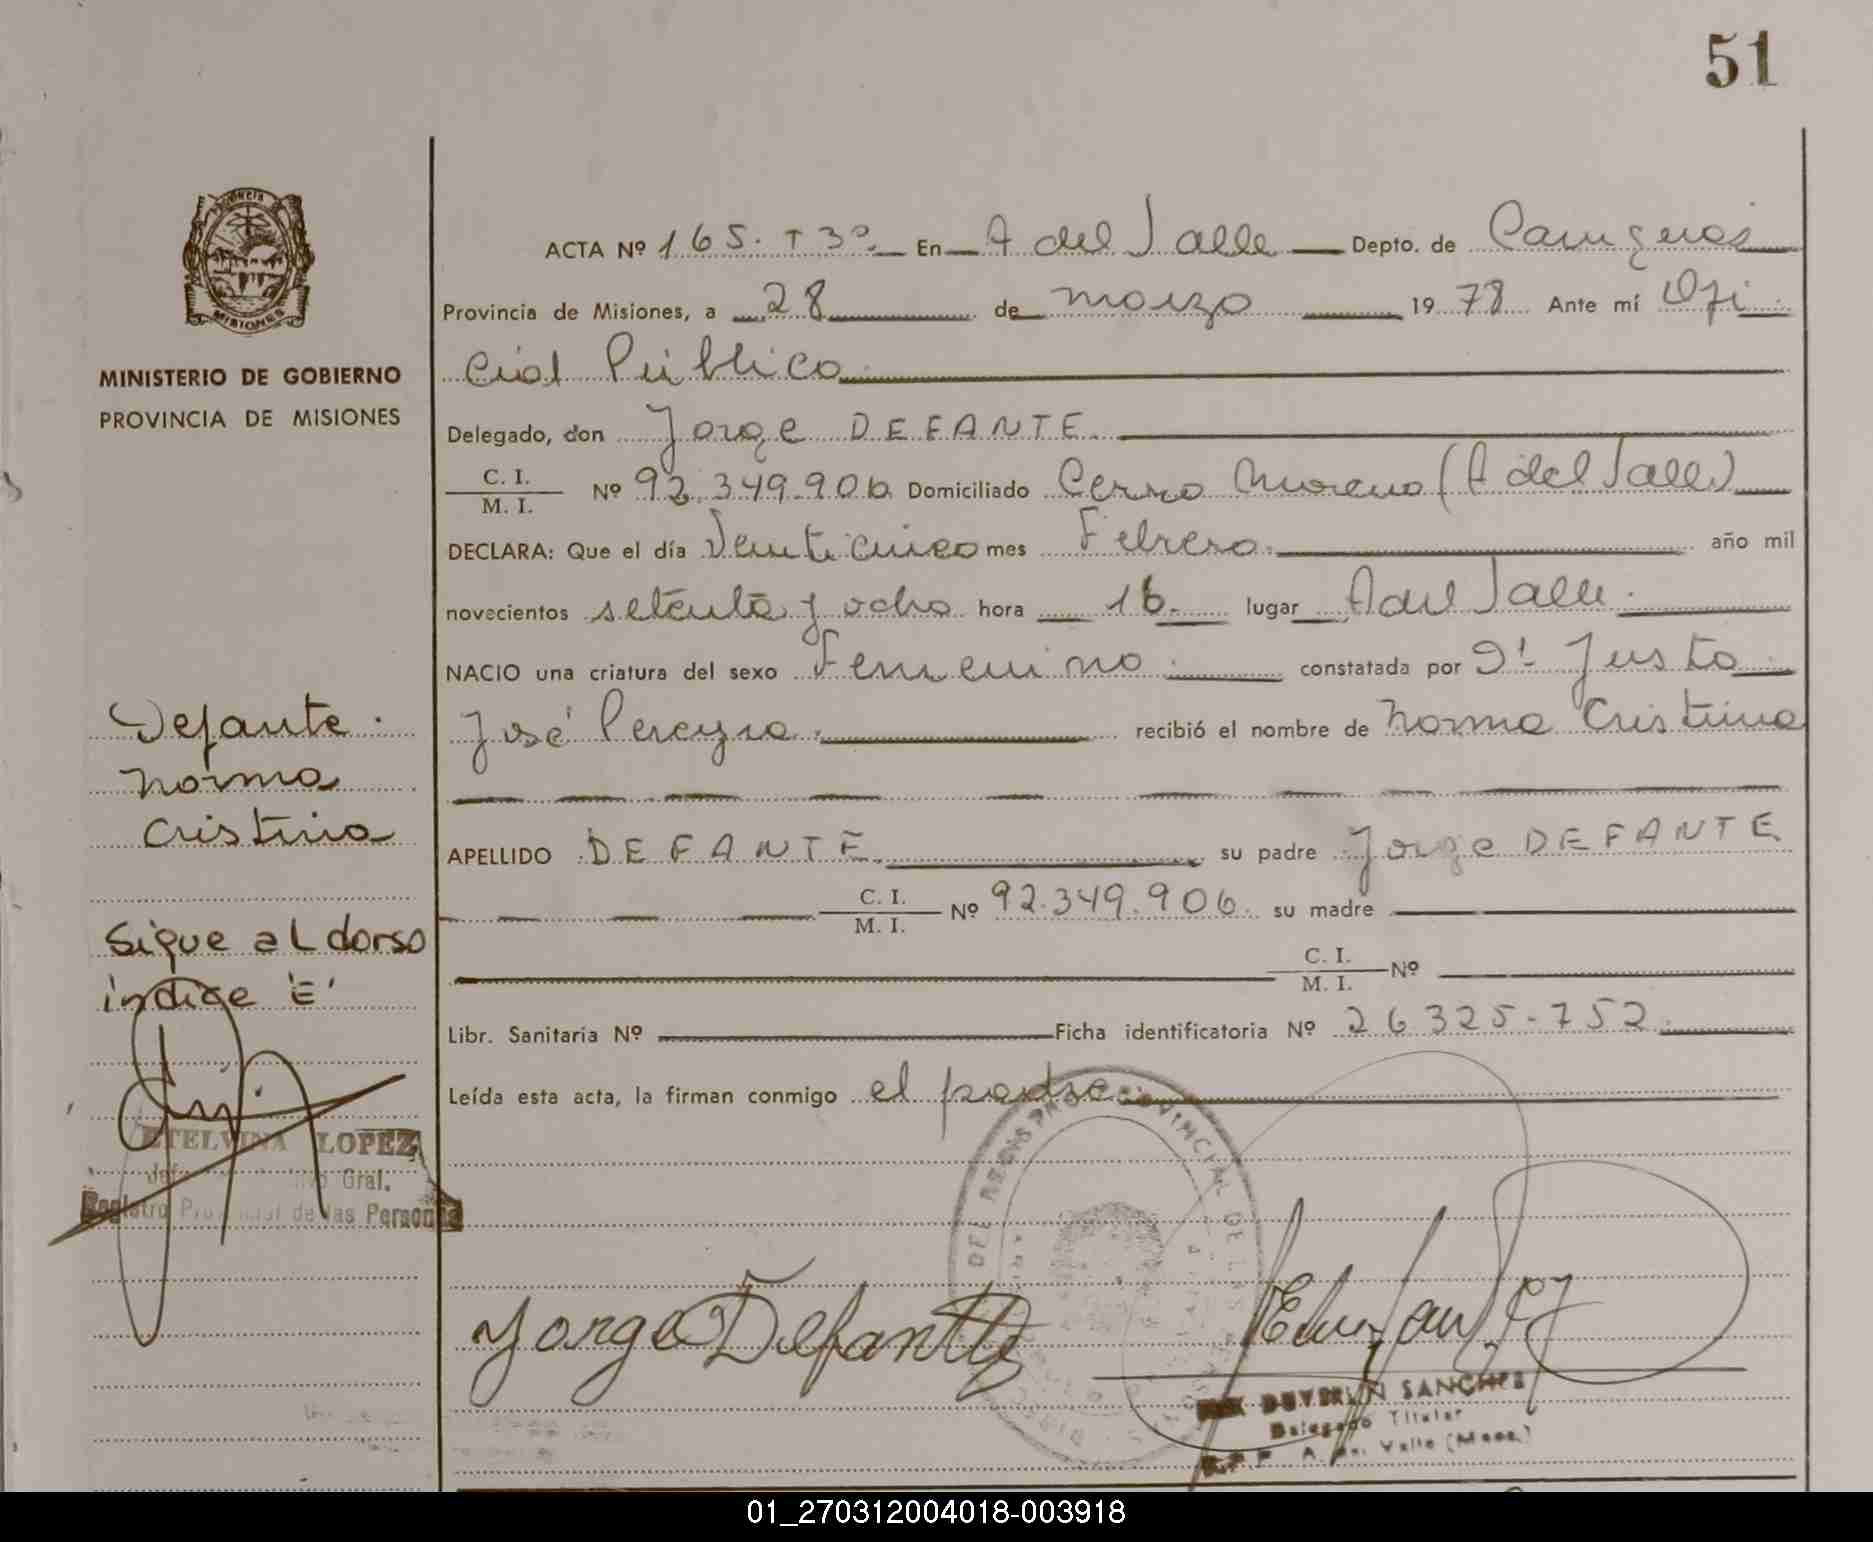 51
PROVINCIA
MISIONES
MINISTERIO DE GOBIERNO
PROVINCIA DE MISIONES
Defante
Norma
Cristina
Sigue al dorso
indice 'E'
ETELVINA LOPEZ
Gral.
Registro Provincial de las Personas
ACTA Nº 165. T 3º. En A del Valle Depto. de Cainguas
Provincia de Misiones, a 28 de marzo 1978 Ante mí Ofi
cial Público
Delegado, don Jorge DEFANTE.
C. I. / M. I. Nº 92.349.906 Domiciliado Cerro Moreno (A del Valle)
DECLARA: Que el día Venticinco mes Febrero. año mil
novecientos setenta y ocho hora 16. lugar A del Valle.
NACIO una criatura del sexo Femenino. constatada por Dr. Justo
José Pereyra. recibió el nombre de Norma Cristina
APELLIDO DEFANTE. su padre Jorge DEFANTE
C. I. / M. I. Nº 92.349.906. su madre
C. I. / M. I. Nº
Libr. Sanitaria Nº Ficha identificatoria Nº 26325-752.
Leída esta acta, la firman conmigo el padre.
Jorge Defante
DUVERLIN SANCHES
Delegado Titular
A. del Valle (Mnes.)
01_270312004018-003918